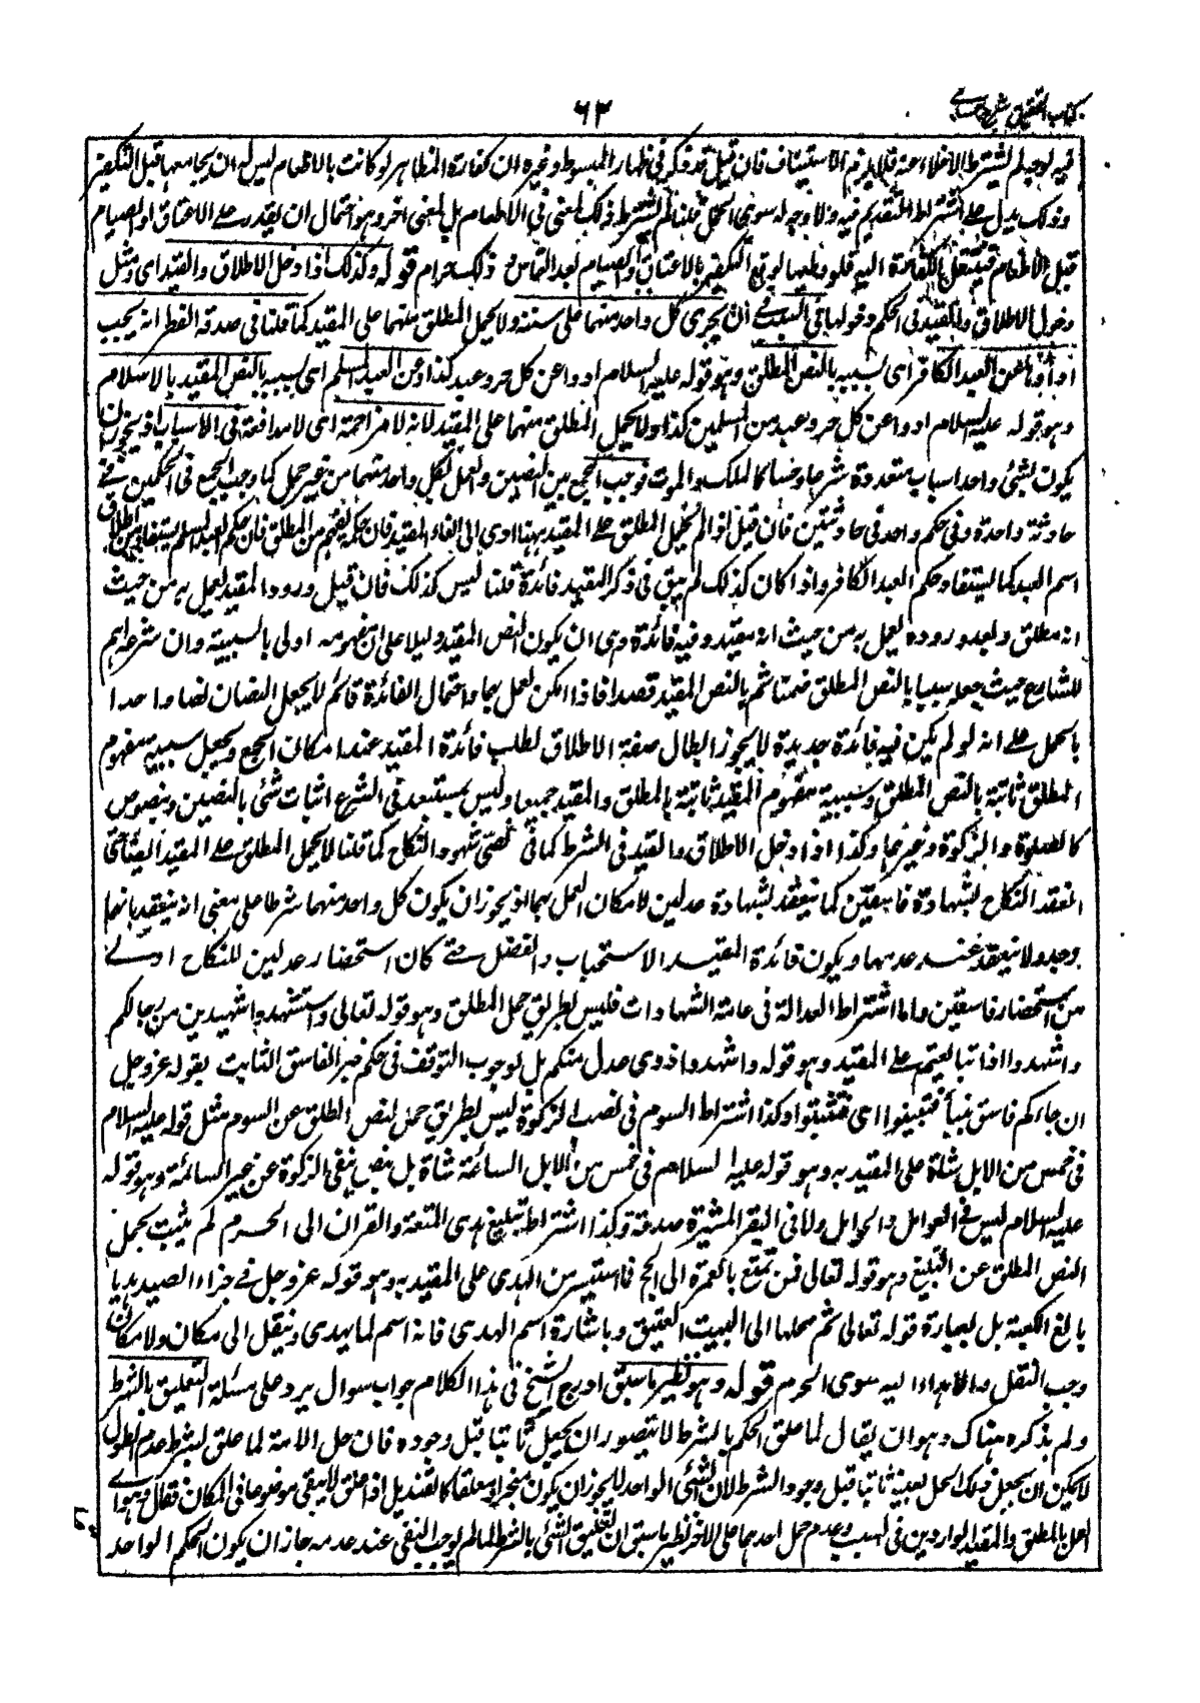 كتاب التحقيق شرح حسامي
٦٢
فيه لوجه لم يشترط الاخلاء عنه فلا يلزم الاستيناف فان قيل قد ذكر في ظهار المبسوط وغيره ان كفارة المظاهر لو كانت بالاطعام ليس له ان يجامعها قبل التكفير
وذلك يدل على اشتراط التقديم فيه ولا وجه له سوى الحمل قلنا لم يشترط ذلك لمعنى في الاطعام بل لمعنى اخر وهو احتمال ان يقدر على الاعتاق او الصيام
قبل الاطعام فينتقل الكفارة اليه فلو وطيها لوقع التكفير بالاعتاق والصيام بعد التماس وذلك حرام قوله وكذلك اذا دخل الاطلاق والتقييد اى ومثل
دخول الاطلاق والتقييد في الحكم دخولهما في السبب في ان يجرى كل واحد منهما على سننه ولا يحمل المطلق منهما على المقيد كما قلنا في صدقة الفطر انه يجب
اداؤها عن العبد الكافر اى بسببه بالنص المطلق وهو قوله عليه السلام ادوا عن كل حر وعبد كذا وعن العبد المسلم اى بسببه بالنص المقيد بالاسلام
وهو قوله عليه السلام ادوا عن كل حر وعبد من المسلمين كذا ولا يحمل المطلق منهما على المقيد لانه لا مزاحمة اى لا مدافعة في الاسباب اذ يجوز ان
يكون لشئ واحد اسباب متعددة شرعا وحسا كالملك والموت فوجب الجمع بين النصين والعمل بكل واحد منهما من غير حمل كما وجب الجمع في الحكمين في
حادثة واحدة وفي حكم واحد في حادثتين فان قيل لو لم يحمل المطلق على المقيد ههنا ادى الى الغاء المقيد فان حكمه يفهم من المطلق فان حكم العبد المسلم يستفاد من اطلاق
اسم العبد كما يستفاد حكم العبد الكافر واذا كان كذلك لم يبق في ذكر المقيد فائدة قلنا ليس كذلك فان قبل ورود المقيد يعمل به من حيث
انه مطلق وبعد وروده يعمل به من حيث انه مقيد وفيه فائدة وهى ان يكون النص المقيد دليلا على ان مفهومه اولى بالسببية وان شرعه اهم
للشارع حيث جعله سببا بالنص المطلق ضمنا ثم بالنص المقيد قصدا فاذا امكن العمل بهما واحتمال الفائدة قائم لا يجعل النصان نصا واحدا
بالحمل على انه لو لم يكن فيه فائدة جديدة لا يجوز ابطال صفة الاطلاق لطلب فائدة المقيد عند امكان الجمع ويجعل سببية مفهوم
المطلق ثابتة بالنص المطلق وسببية مفهوم المقيد ثابتة بالمطلق والمقيد جميعا وليس بمستبعد في الشرع اثبات شئ بالنصين وبنصوص
كالصلوة والزكوة وغيرهما وكذا اذا دخل الاطلاق والتقييد في الشرط كما في نصى شهود النكاح كما قلنا لا يحمل المطلق على المقيد ايضا حتى
انعقد النكاح بشهادة فاسقين كما ينعقد بشهادة عدلين لامكان العمل بهما اذ يجوز ان يكون كل واحد منهما شرطا على معنى انه ينعقد بايهما
وجد ولا ينعقد عند عدمهما ويكون فائدة المقيد الاستحباب والفضل حتى كان استحضار عدلين للنكاح اولى
من استحضار فاسقين واما اشتراط العدالة في عامة الشهادات فليس بطريق حمل المطلق وهو قوله تعالى واستشهدوا شهيدين من رجالكم
واشهدوا اذا تبايعتم على المقيد وهو قوله واشهدوا ذوى عدل منكم بل لوجوب التوقف في حكم خبر الفاسق الثابت بقوله عزوجل
ان جاءكم فاسق بنبأ فتبينوا اى فتثبتوا وكذا اشتراط السوم في نصب الزكوة ليس بطريق حمل النص المطلق عن السوم مثل قوله عليه السلام
في خمس من الابل شاة على المقيد به وهو قوله عليه السلام في خمس من الابل السائمة شاة بل بنص ينفى الزكوة عن غير السائمة وهو قوله
عليه السلام ليس في العوامل والحوامل ولا في البقر المثيرة صدقة وكذا اشتراط تبليغ هدى المتعة والقران الى الحرم لم يثبت بحمل
النص المطلق عن التبليغ وهو قوله تعالى فمن تمتع بالعمرة الى الحج فما استيسر من الهدى على المقيد به وهو قوله عزوجل في جزاء الصيد هديا
بالغ الكعبة بل بعبارة قوله تعالى ثم محلها الى البيت العتيق وباشارة اسم الهدى فانه اسم لما يهدى وينقل الى مكان ولا مكان
وجب النقل والاهداء اليه سوى الحرم قوله وهو نظير ما سبق ادرج الشيخ في هذا الكلام جواب سوال يرد على مسئلة التعليق بالشرط
ولم يذكره هناك وهو ان يقال لما علق الحكم بالشرط لا يتصور ان يجعل ثابتا قبل وجوده فان حل الامة لما علق بشرط عدم الطول
لا يمكن ان يجعل ذلك الحل بعينه ثابتا قبل وجود الشرط لان الشئ الواحد لا يجوز ان يكون منجزا ومعلقا كالقنديل اذا علق لا يبقى موضوعا في المكان فقال وهو اى
العمل بالمطلق والمقيد الواردين في السبب وعدم حمل احدهما على الاخر نظير ما سبق ان التعليق الشئ بالشرط لما لم يوجب النفى عند عدمه جاز ان يكون الحكم الواحد